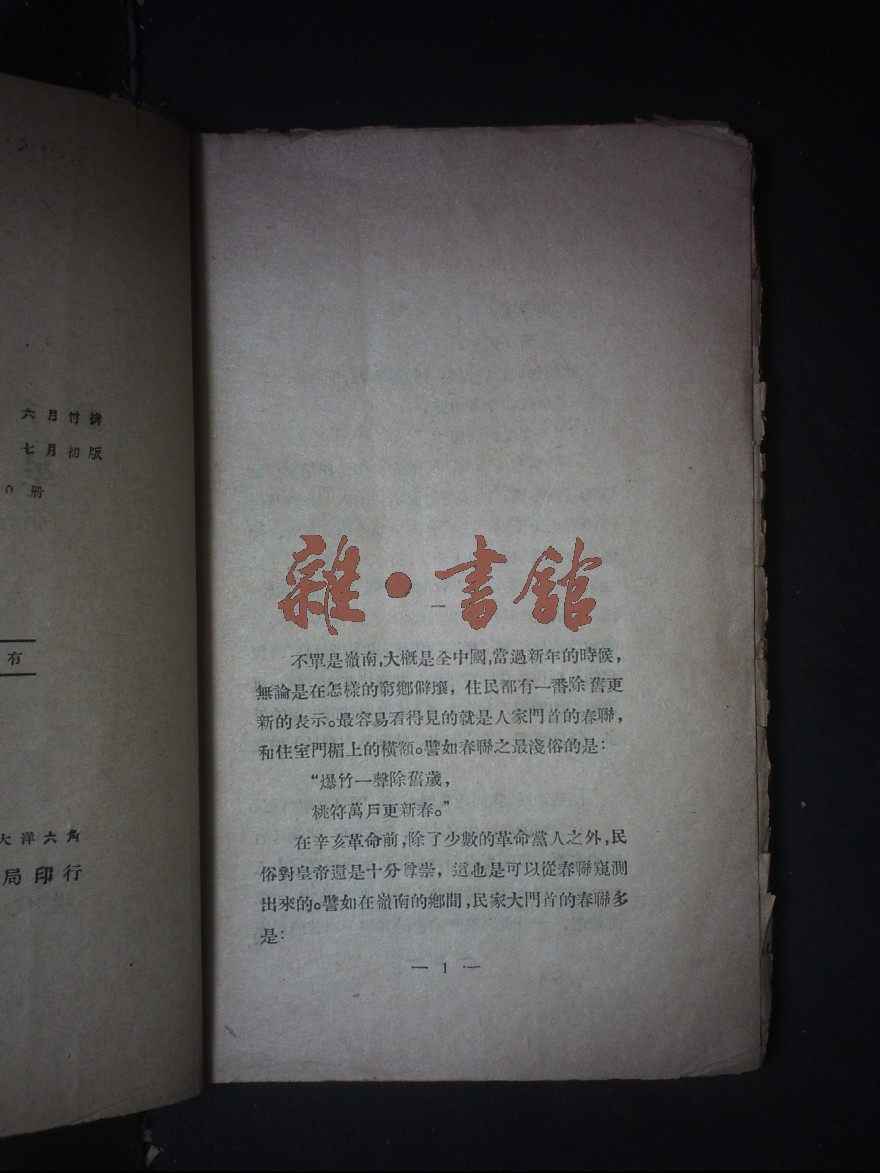 六月付排
七月初版
0册
有
大洋六角
局印行
雜•書館
一
不單是嶺南,大概是全中國,當過新年的時候,
無論是在怎樣的窮鄉僻壤,住民都有一番除舊更
新的表示。最容易看得見的就是人家門首的春聯,
和住室門楣上的橫額。譬如春聯之最淺俗的是:
“爆竹一聲除舊歲,
桃符萬戶更新春。”
在辛亥革命前,除了少數的革命黨人之外,民
俗對皇帝還是十分尊崇,這也是可以從春聯窺測
出來的。譬如在嶺南的鄉間,民家大門首的春聯多
是:
— 1 —